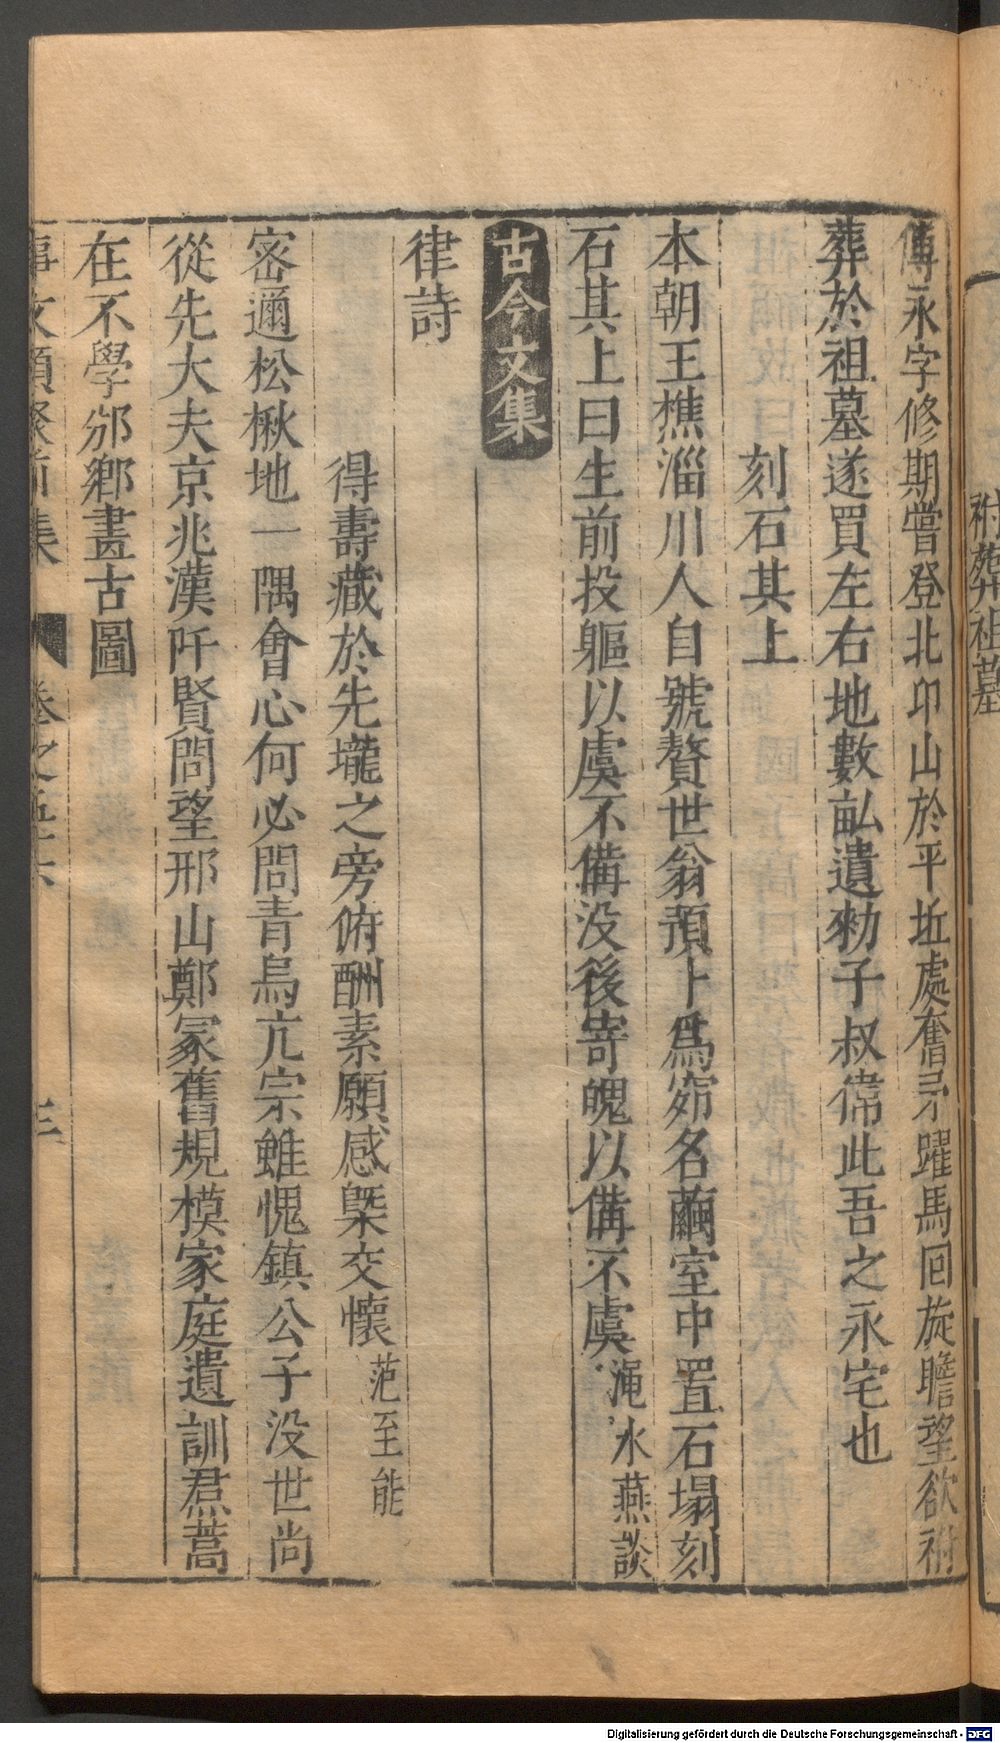 祔葬祖墓
傅永字修期嘗登北卬山於平坵處奮矛躍馬囘旋瞻望欲祔
葬於祖墓遂買左右地數畆遺勑子叔偉此吾之永宅也
刻石其上
本朝王樵淄川人自號贅世翁預卜爲窀名繭室中置石塌刻
石其上曰生前投軀以虞不備没後寄魄以備不虞 澠水燕談
古今文集
律詩
得壽藏於先壠之旁俯酬素願感槩交懷 范至能
密邇松楸地一隅會心何必問青烏亢宗雖愧鎮公子没世尚
從先大夫京兆漢阡賢問望邢山鄭冢舊規模家庭遺訓焄蒿
在不學邠鄉畫古圖
事文類聚前集 卷之五十六 三
Digitalisierung gefördert durch die Deutsche Forschungsgemeinschaft - DFG